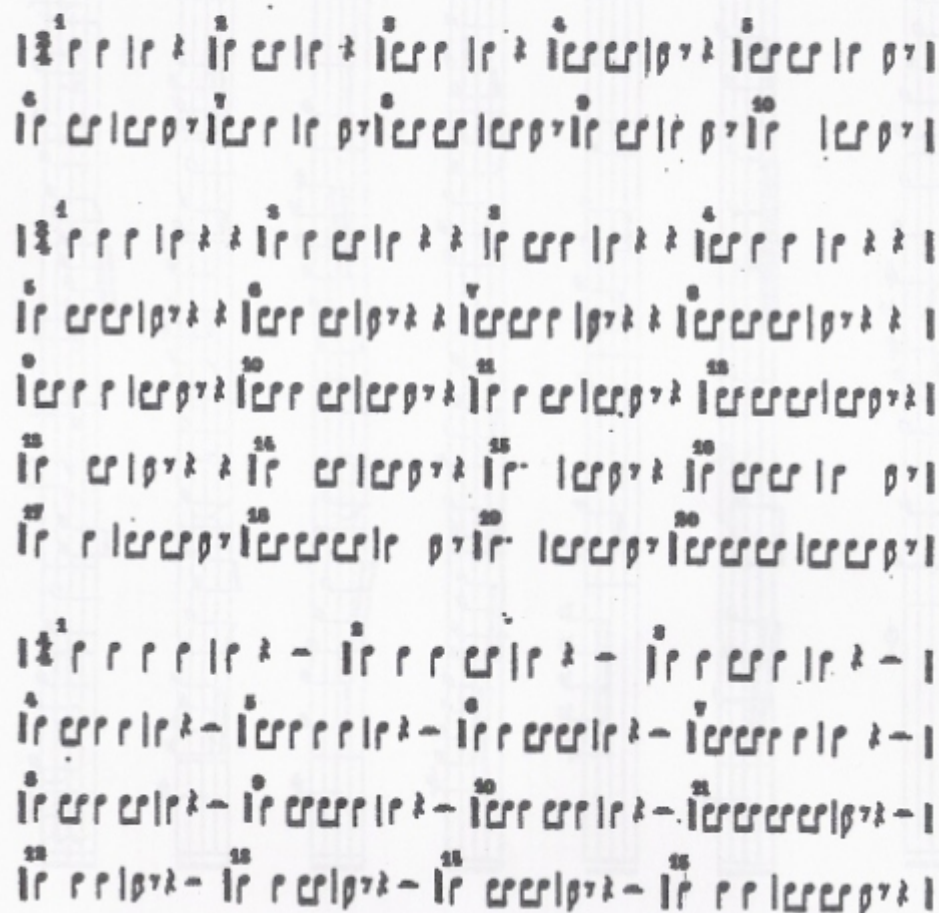 1 2 3 4 5
6 7 8 9 10
1 2 3 4
5 6 7 8
9 10 11 12
13 14 15 16
17 18 19 20
1 2 3
4 5 6 7
8 9 10 11
12 13 14 15